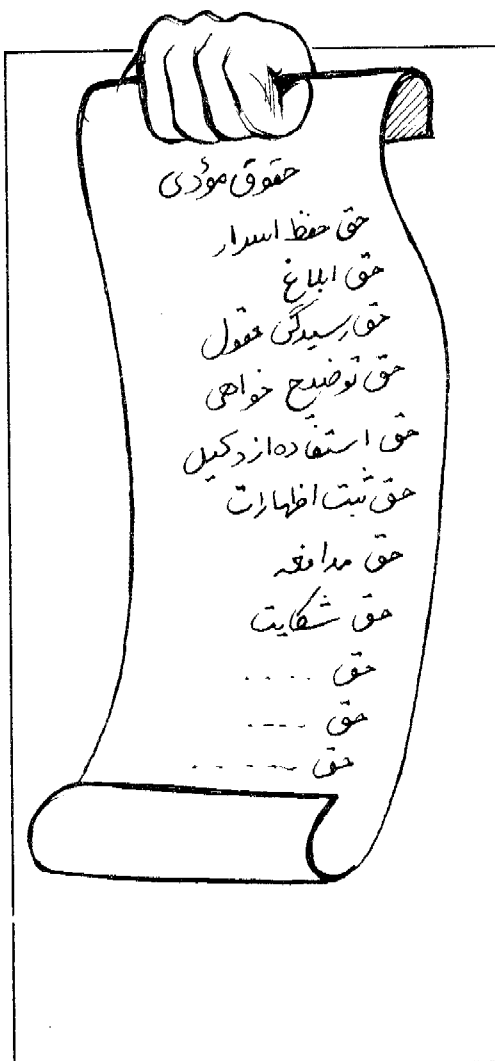 حقوق مؤدی
حق حفظ اسرار
حق ابلاغ
حق رسیدگی معقول
حق توضیح خواهی
حق استفاده از وکیل
حق ثبت اظهارات
حق مدافعه
حق شکایت
حق ....
حق ....
حق ......